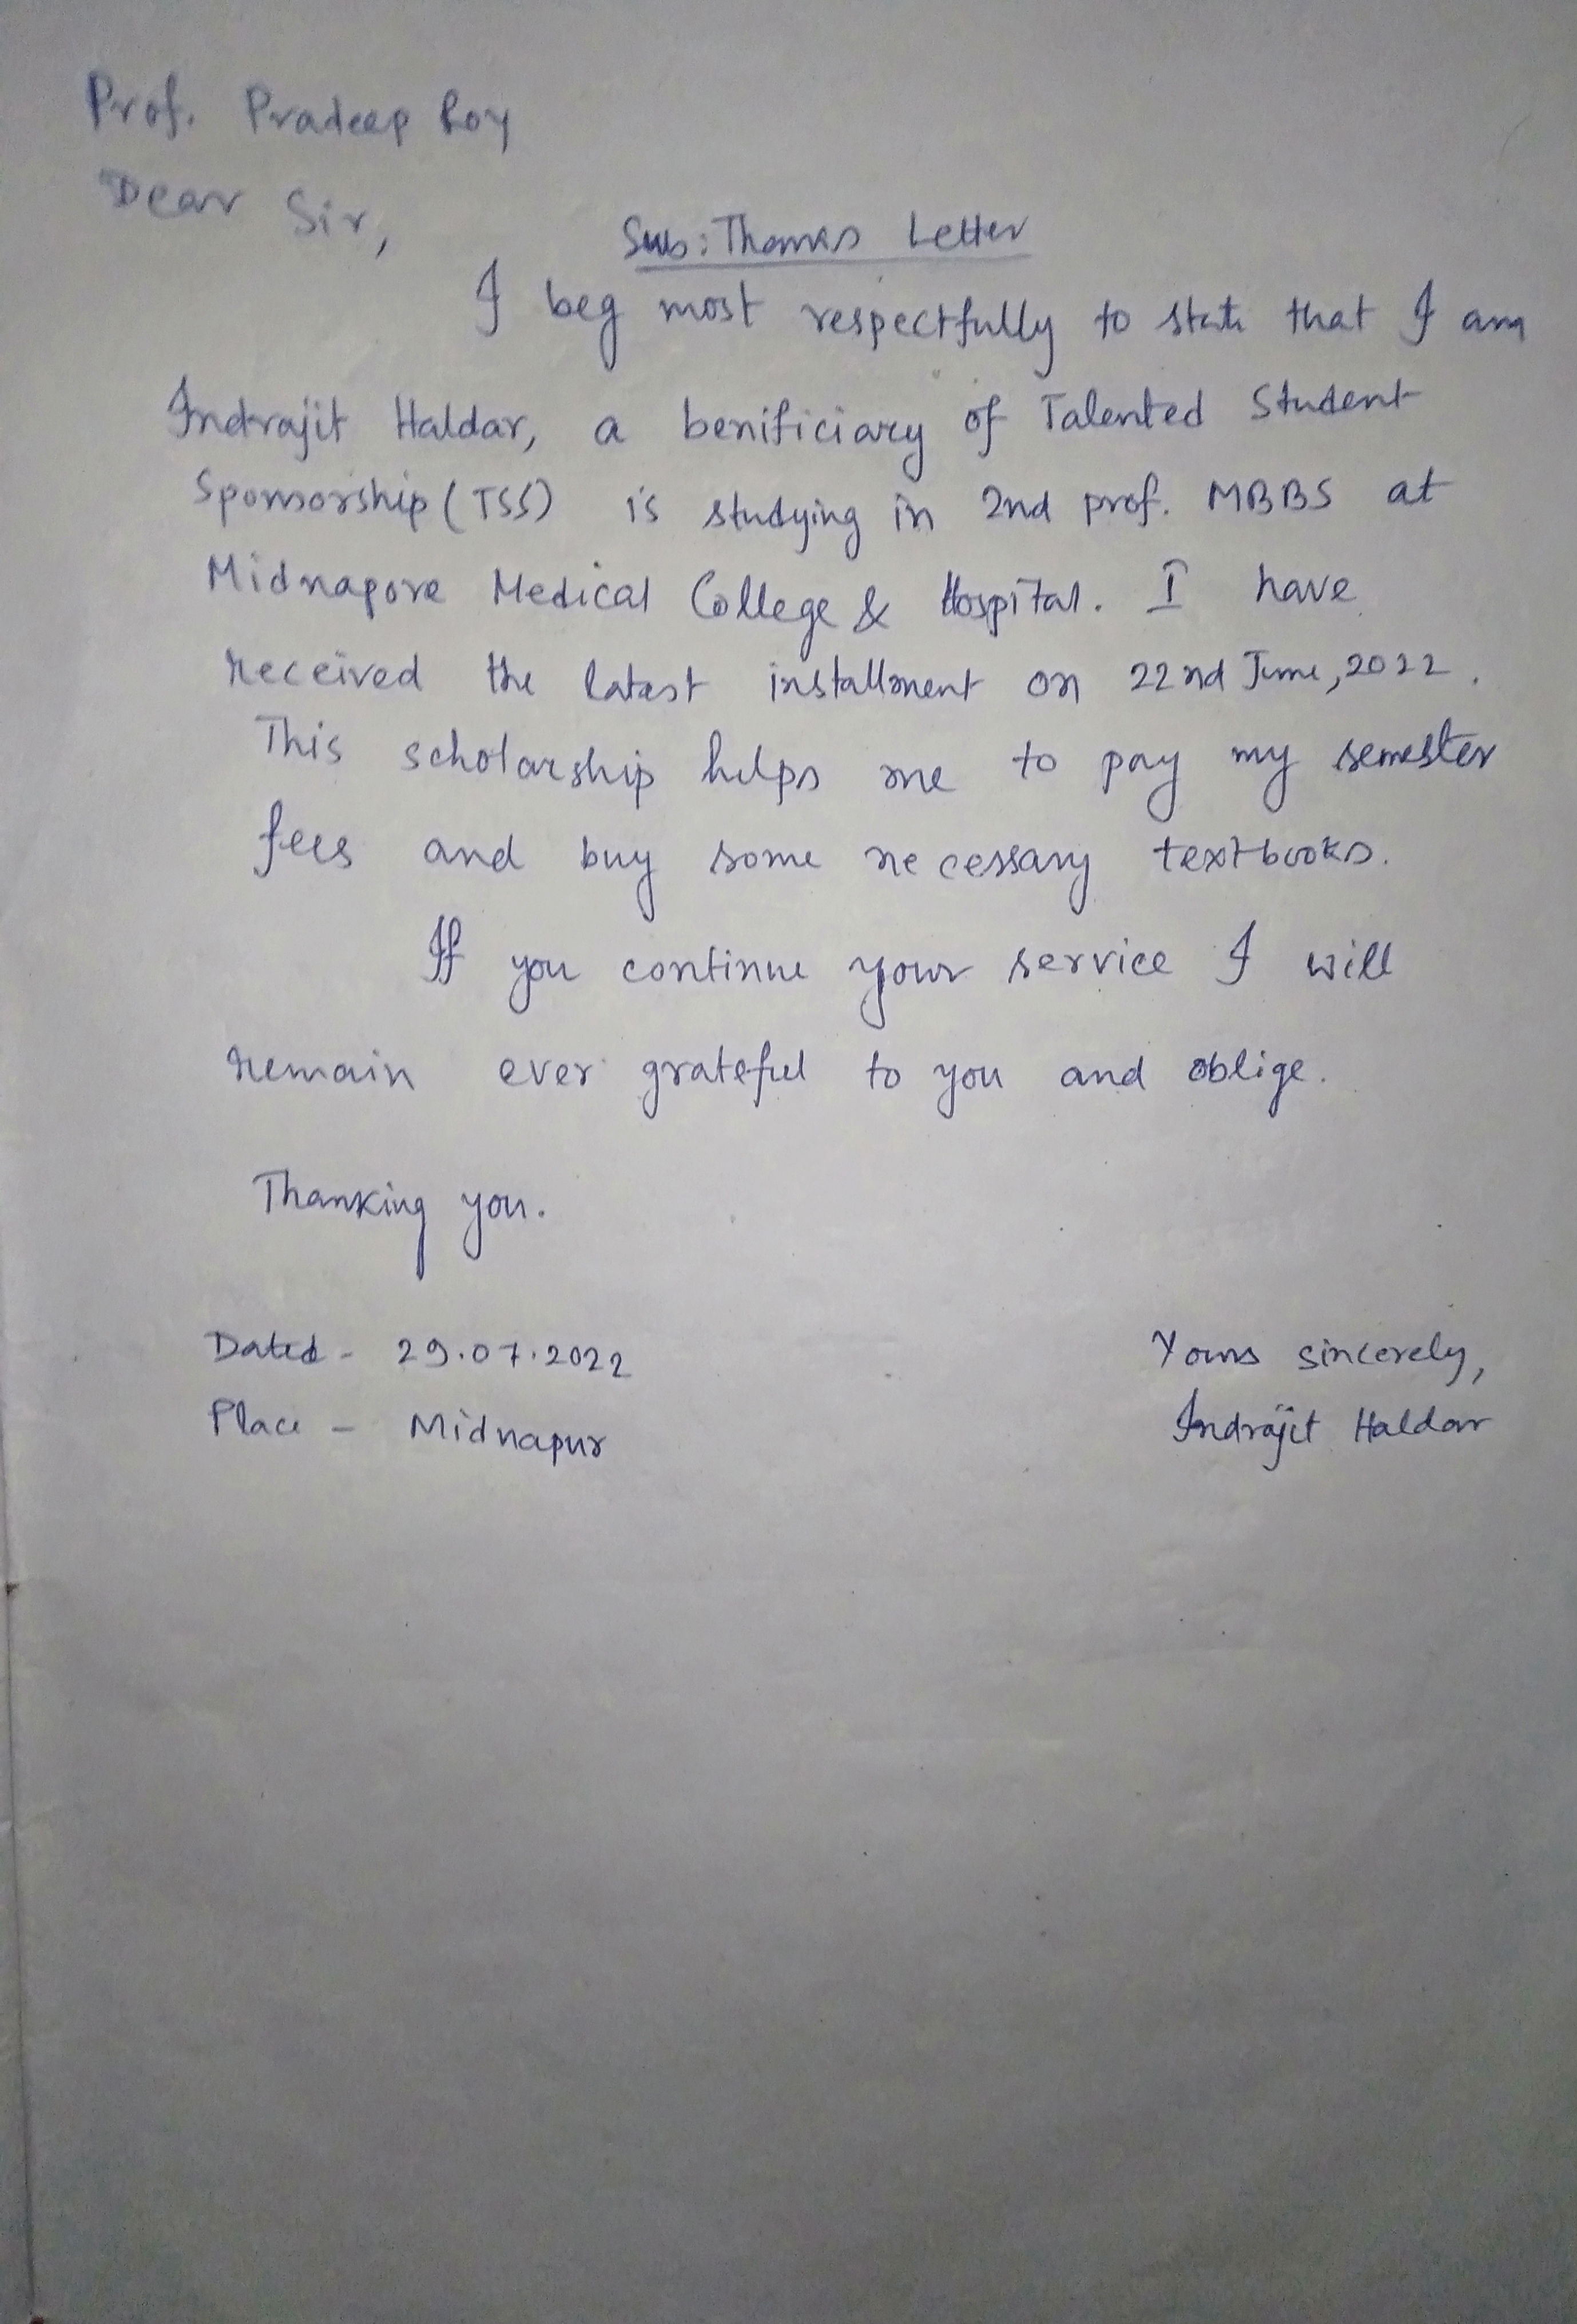 Prof. Pradeep Roy
Dear Sir,
Sub: Thanks Letter
I beg most respectfully to state that I am
Indrajit Haldar, a benificiary of Talented Student
Sponsorship (TSS) is studying in 2nd prof. MBBS at
Midnapore Medical College & Hospital. I have
received the latest installment on 22nd June, 2022.
This scholarship helps me to pay my semester
fees and buy some necessary textbooks.
If you continue your service I will
remain ever grateful to you and oblige.
Thanking you.
Dated - 29.07.2022
Place - Midnapur
Yours sincerely,
Indrajit Haldar